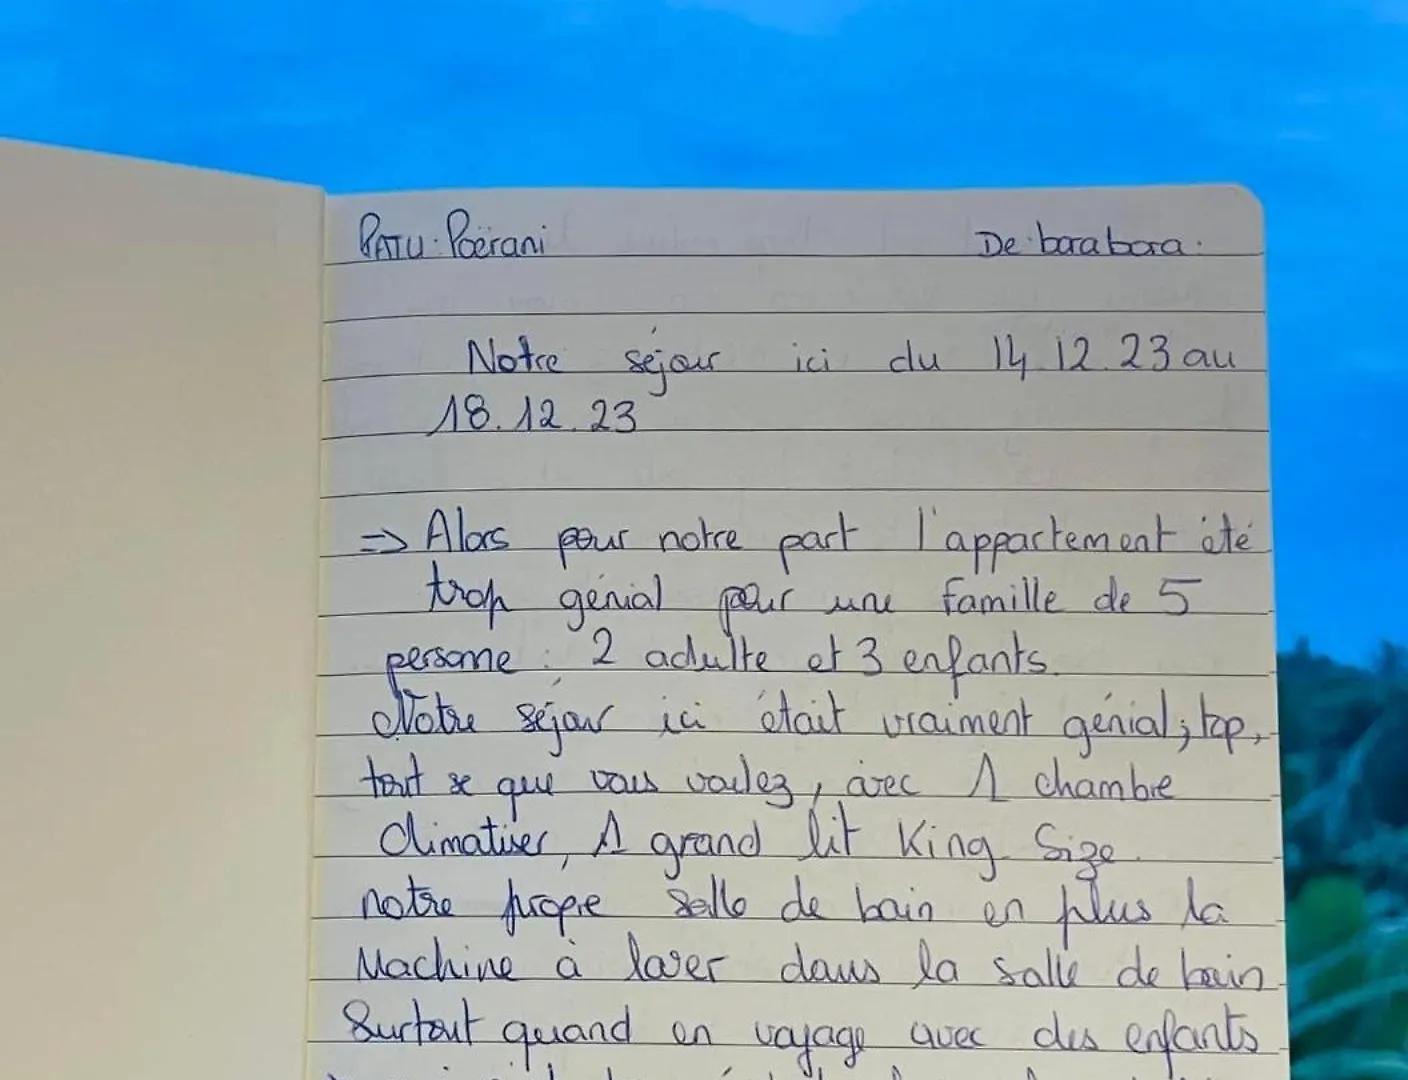 PATU: Poërani De bora bora.
Notre séjour ici du 14.12.23 au
18.12.23
=> Alors pour notre part l'appartement été
trop génial pour une famille de 5
persone : 2 adulte et 3 enfants.
Notre séjour ici était vraiment génial, top,
tout se que vous voulez, avec 1 chambre
Climatiser, 1 grand lit King Size.
notre propre salle de bain en plus la
Machine à laver dans la salle de bain
Surtout quand on voyage avec des enfants